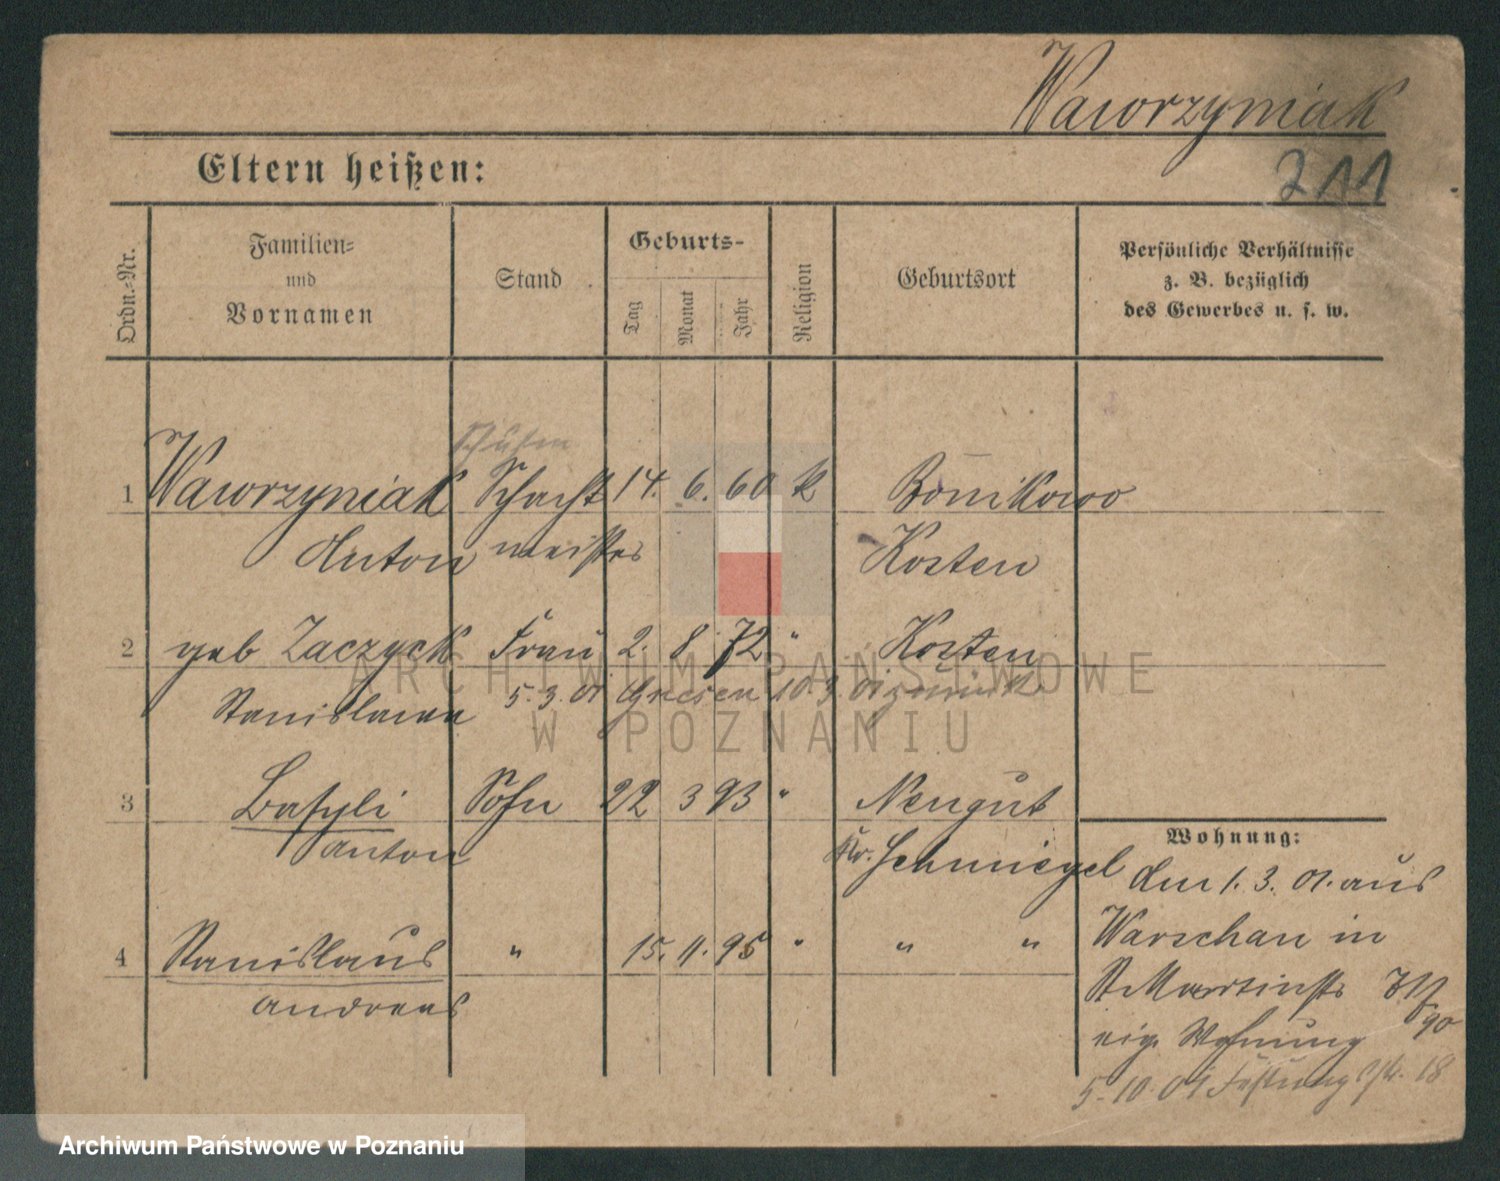 Wawrzyniak
211
Eltern heißen:
Ordn.-Nr.
Familien-
und
Vornamen
Stand
Geburts-
Tag
Monat
Jahr
Religion
Geburtsort
Persönliche Verhältnisse
z. B. bezüglich
des Gewerbes u. s. w.
1 Wawrzyniak Schacht 14. 6. 60 k Bonikowo
Anton meister Kosten
2 geb Zaczyck Frau 2. 8. 72 " Kosten
Stanislawa 5. 3. 01 Gnesen 10 3 01 zurück
3 Basyli Sohn 22 3 93 " Neugut
Anton Kr. Schmiegel
4 Stanislaus " 15. 11. 95 " " "
Andreas
Wohnung:
den 1. 3. 01. aus
Warschau in
St Martinstr
eig. Wohnung 90
5. 10. 01 Festungsstr. 18
ARCHIWUM PAŃSTWOWE
W POZNANIU
Archiwum Państwowe w Poznaniu